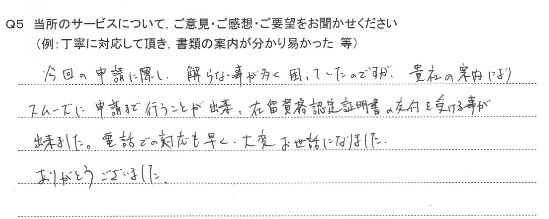 Q5 当所のサービスについて，ご意見・ご感想・ご要望をお聞かせください
（例：丁寧に対応して頂き，書類の案内が分かり易かった 等）
今回の申請に際し、解らない事が多く困っていたのですが、貴社の案内により
スムーズに申請まで行うことが出来、在留資格認定証明書の交付を受ける事が
出来ました。電話での対応も早く、大変お世話になりました。
ありがとうございました。